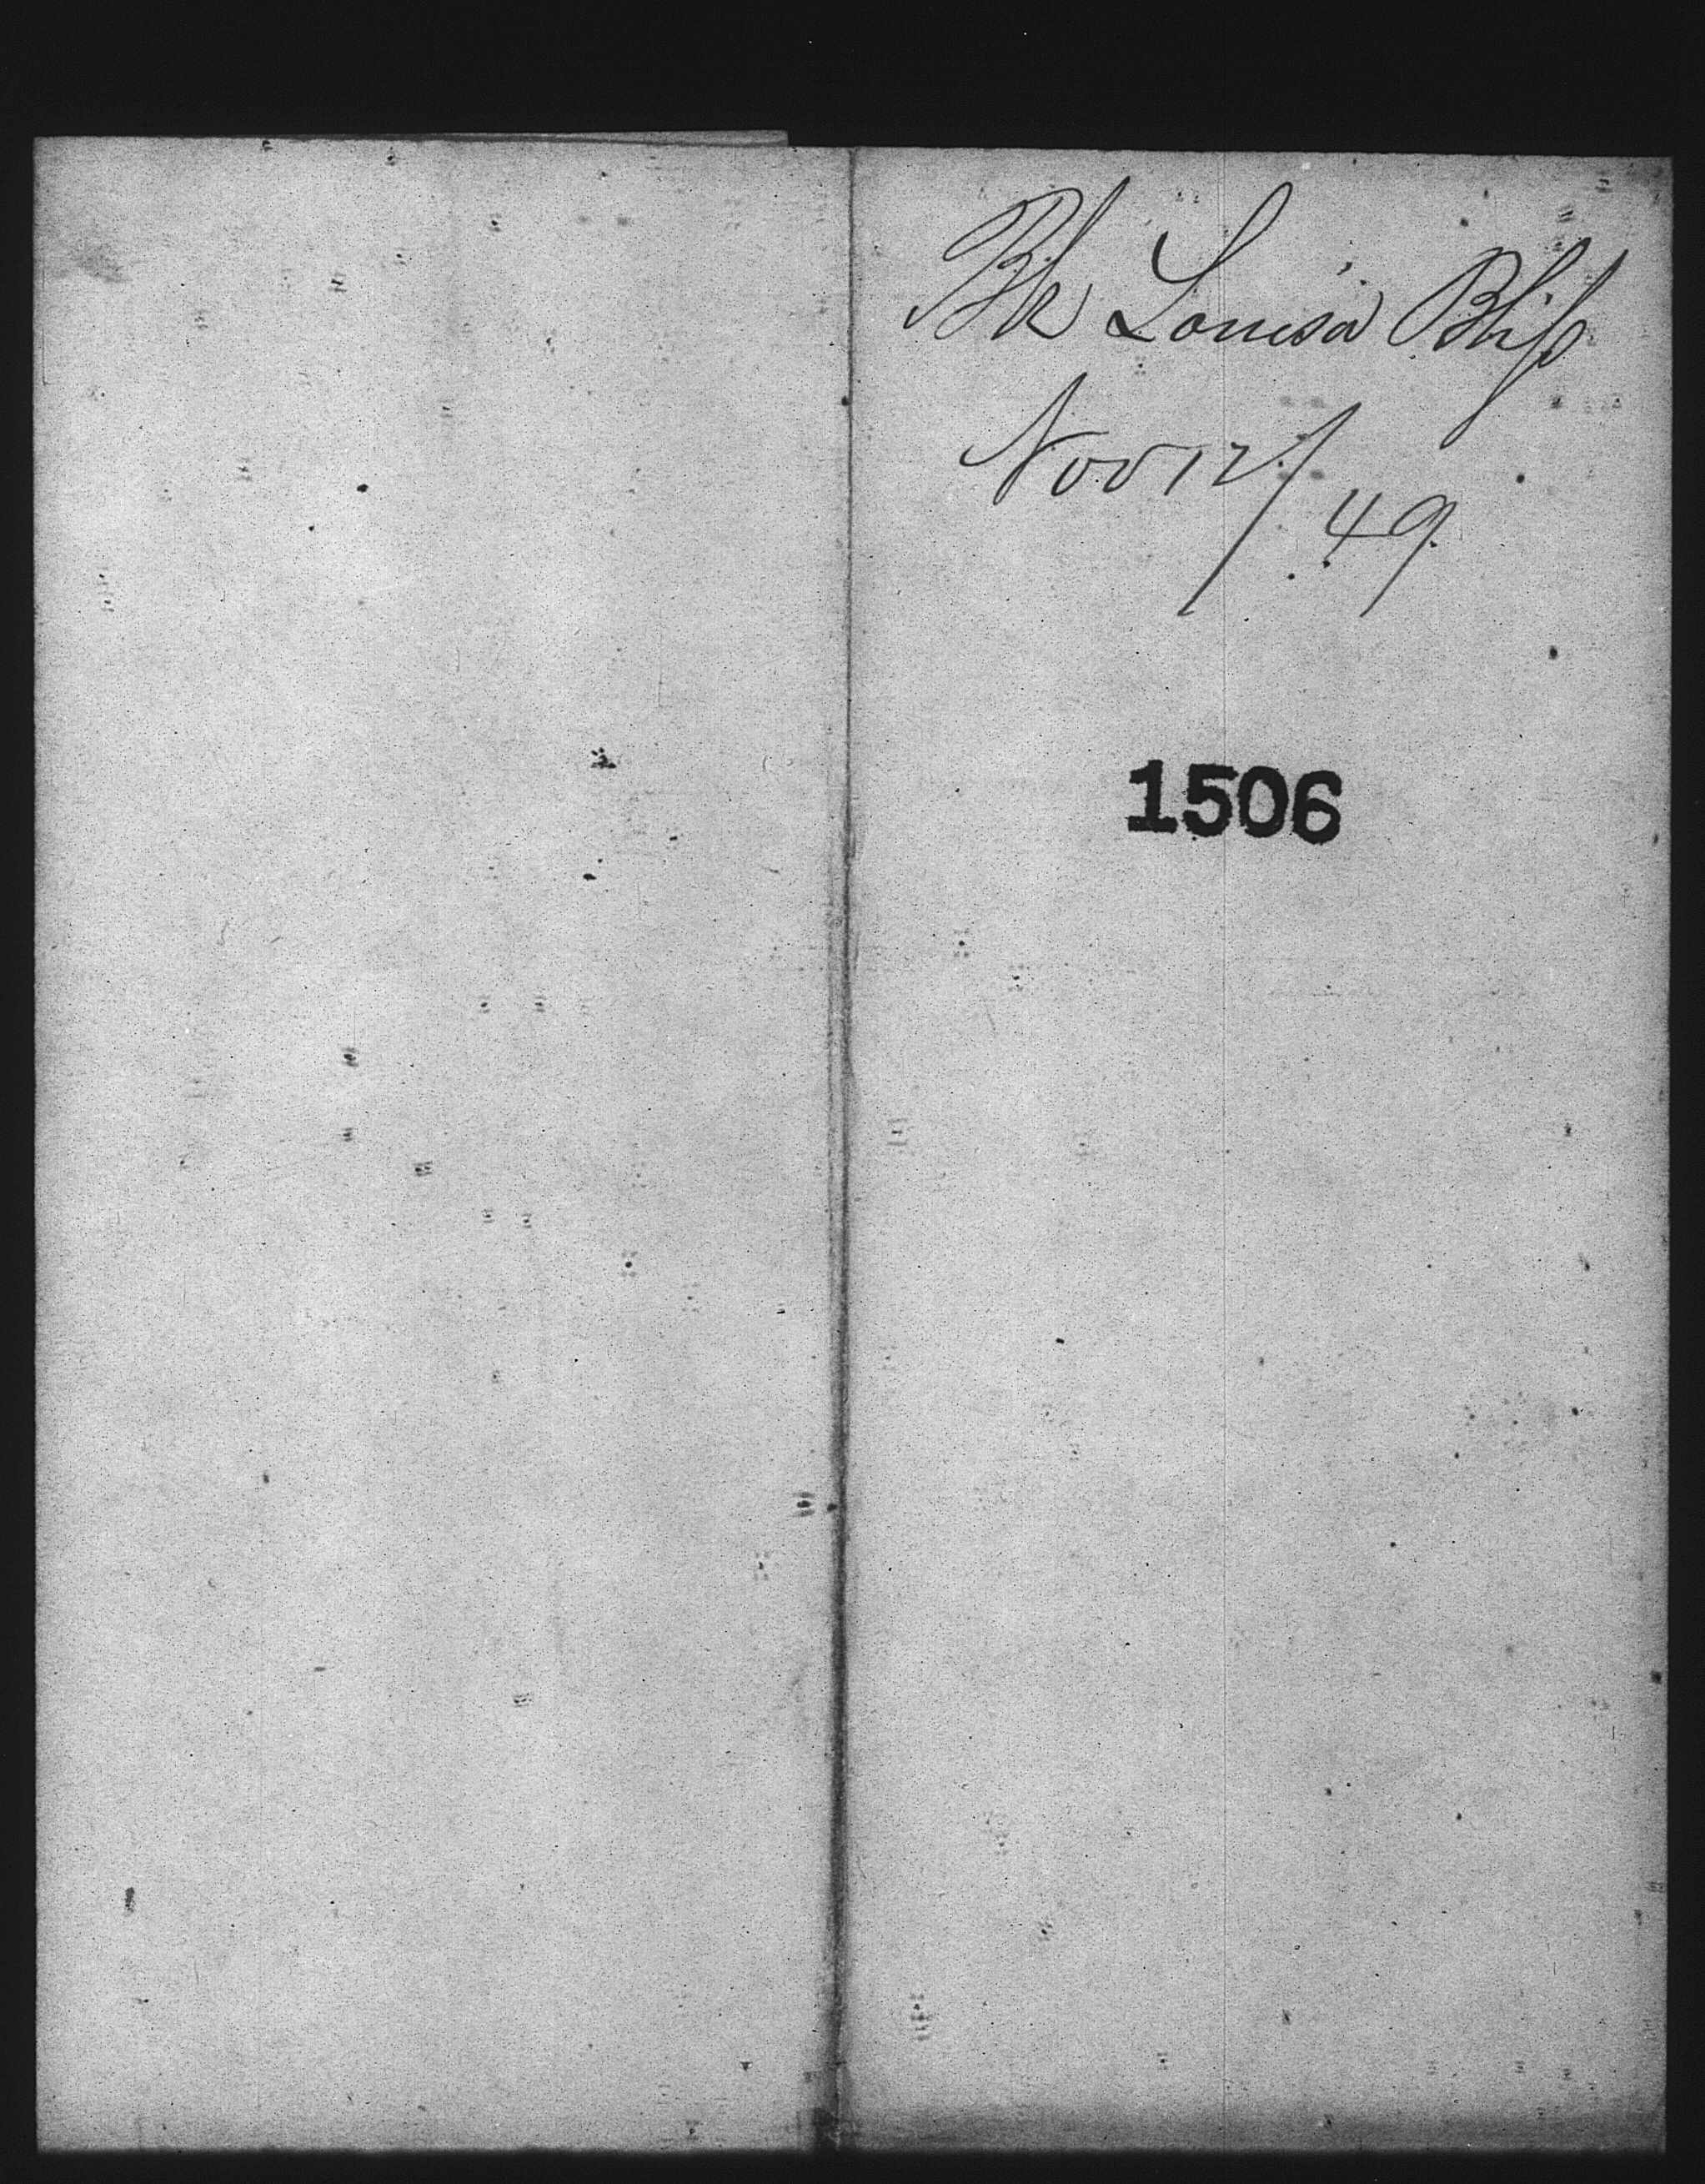 Bk Louisa Bliss
Nov 12/49
1506